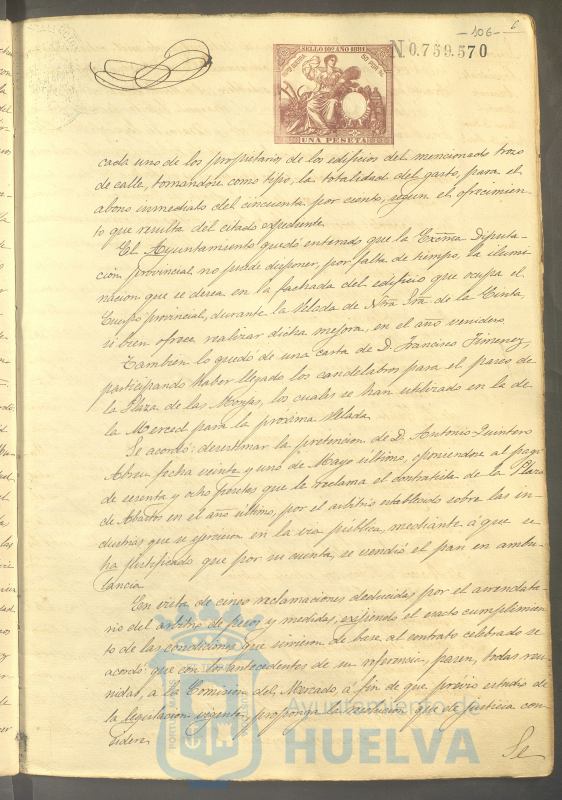 106
6
SELLO 10º AÑO 1881
N.0.759.570
UNA PESETA
cada uno de los propietarios de los edificios del mencionado trozo
de calle, tomandose como tipo, la totalidad del gasto, para el
abono inmediato del cincuenta por ciento, segun el ofrecimien
to que resulta del citado expediente.
El Ayuntamiento quedó enterado que la Excma Diputa-
cion provincial no puede disponer, por falta de tiempo, la ilumi
nacion que se desea en la fachada del edificio que ocupa el
Cuerpo provincial, durante la Velada de Ntra Sra de la Cinta,
si bien ofrece realizar dicha mejora, en el año venidero
Tambien lo quedó de una carta de D. Francisco Jimenez,
participando haber llegado los candelabros para el paseo de
la Plaza de las Monjas, los cuales se han utilizado en la de
la Merced para la proxima Velada.
Se acordó: desestimar la pretencion de D. Antonio Quintero
Abreu fecha veinte y uno de Mayo ultimo, oponiendose al pago
de sesenta y ocho pesetas que le reclama el contratista de la Plaza
de Abastos en el año ultimo, por el arbitrio establecido sobre las in-
dustrias que se ejercen en la via pública, mediante á que se
ha justificado que por su cuenta, se vendió el pan en ambu-
lancia.
En vista de cinco reclamaciones deducidas por el arrendata-
rio del arbitrio de pesos y medidas, exijiendo el exacto cumplimien
to de las condiciones que sirvieron de base al contrato celebrado se
acordó: que con los antecedentes de su referencia, pasen, todas reu-
nidas, a la Comision del Mercado, á fin de que previo estudio de
la legislacion vigente, proponga la resolucion que de justicia con
sidere.
Se
Ayuntamiento de
HUELVA